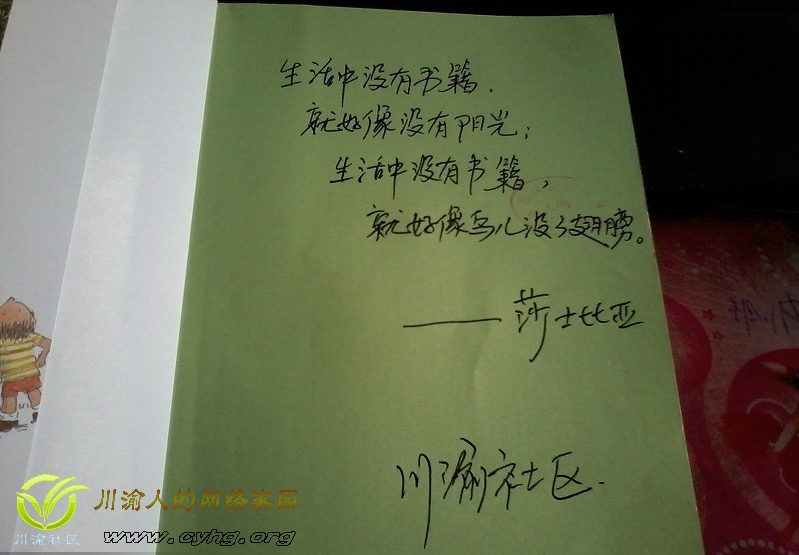 生活中没有书籍，
就好像没有阳光；
生活中没有书籍，
就好像鸟儿没了翅膀。
——莎士比亚
川渝社区.
川渝人的网络家园
川渝社区
www.cyhg.org